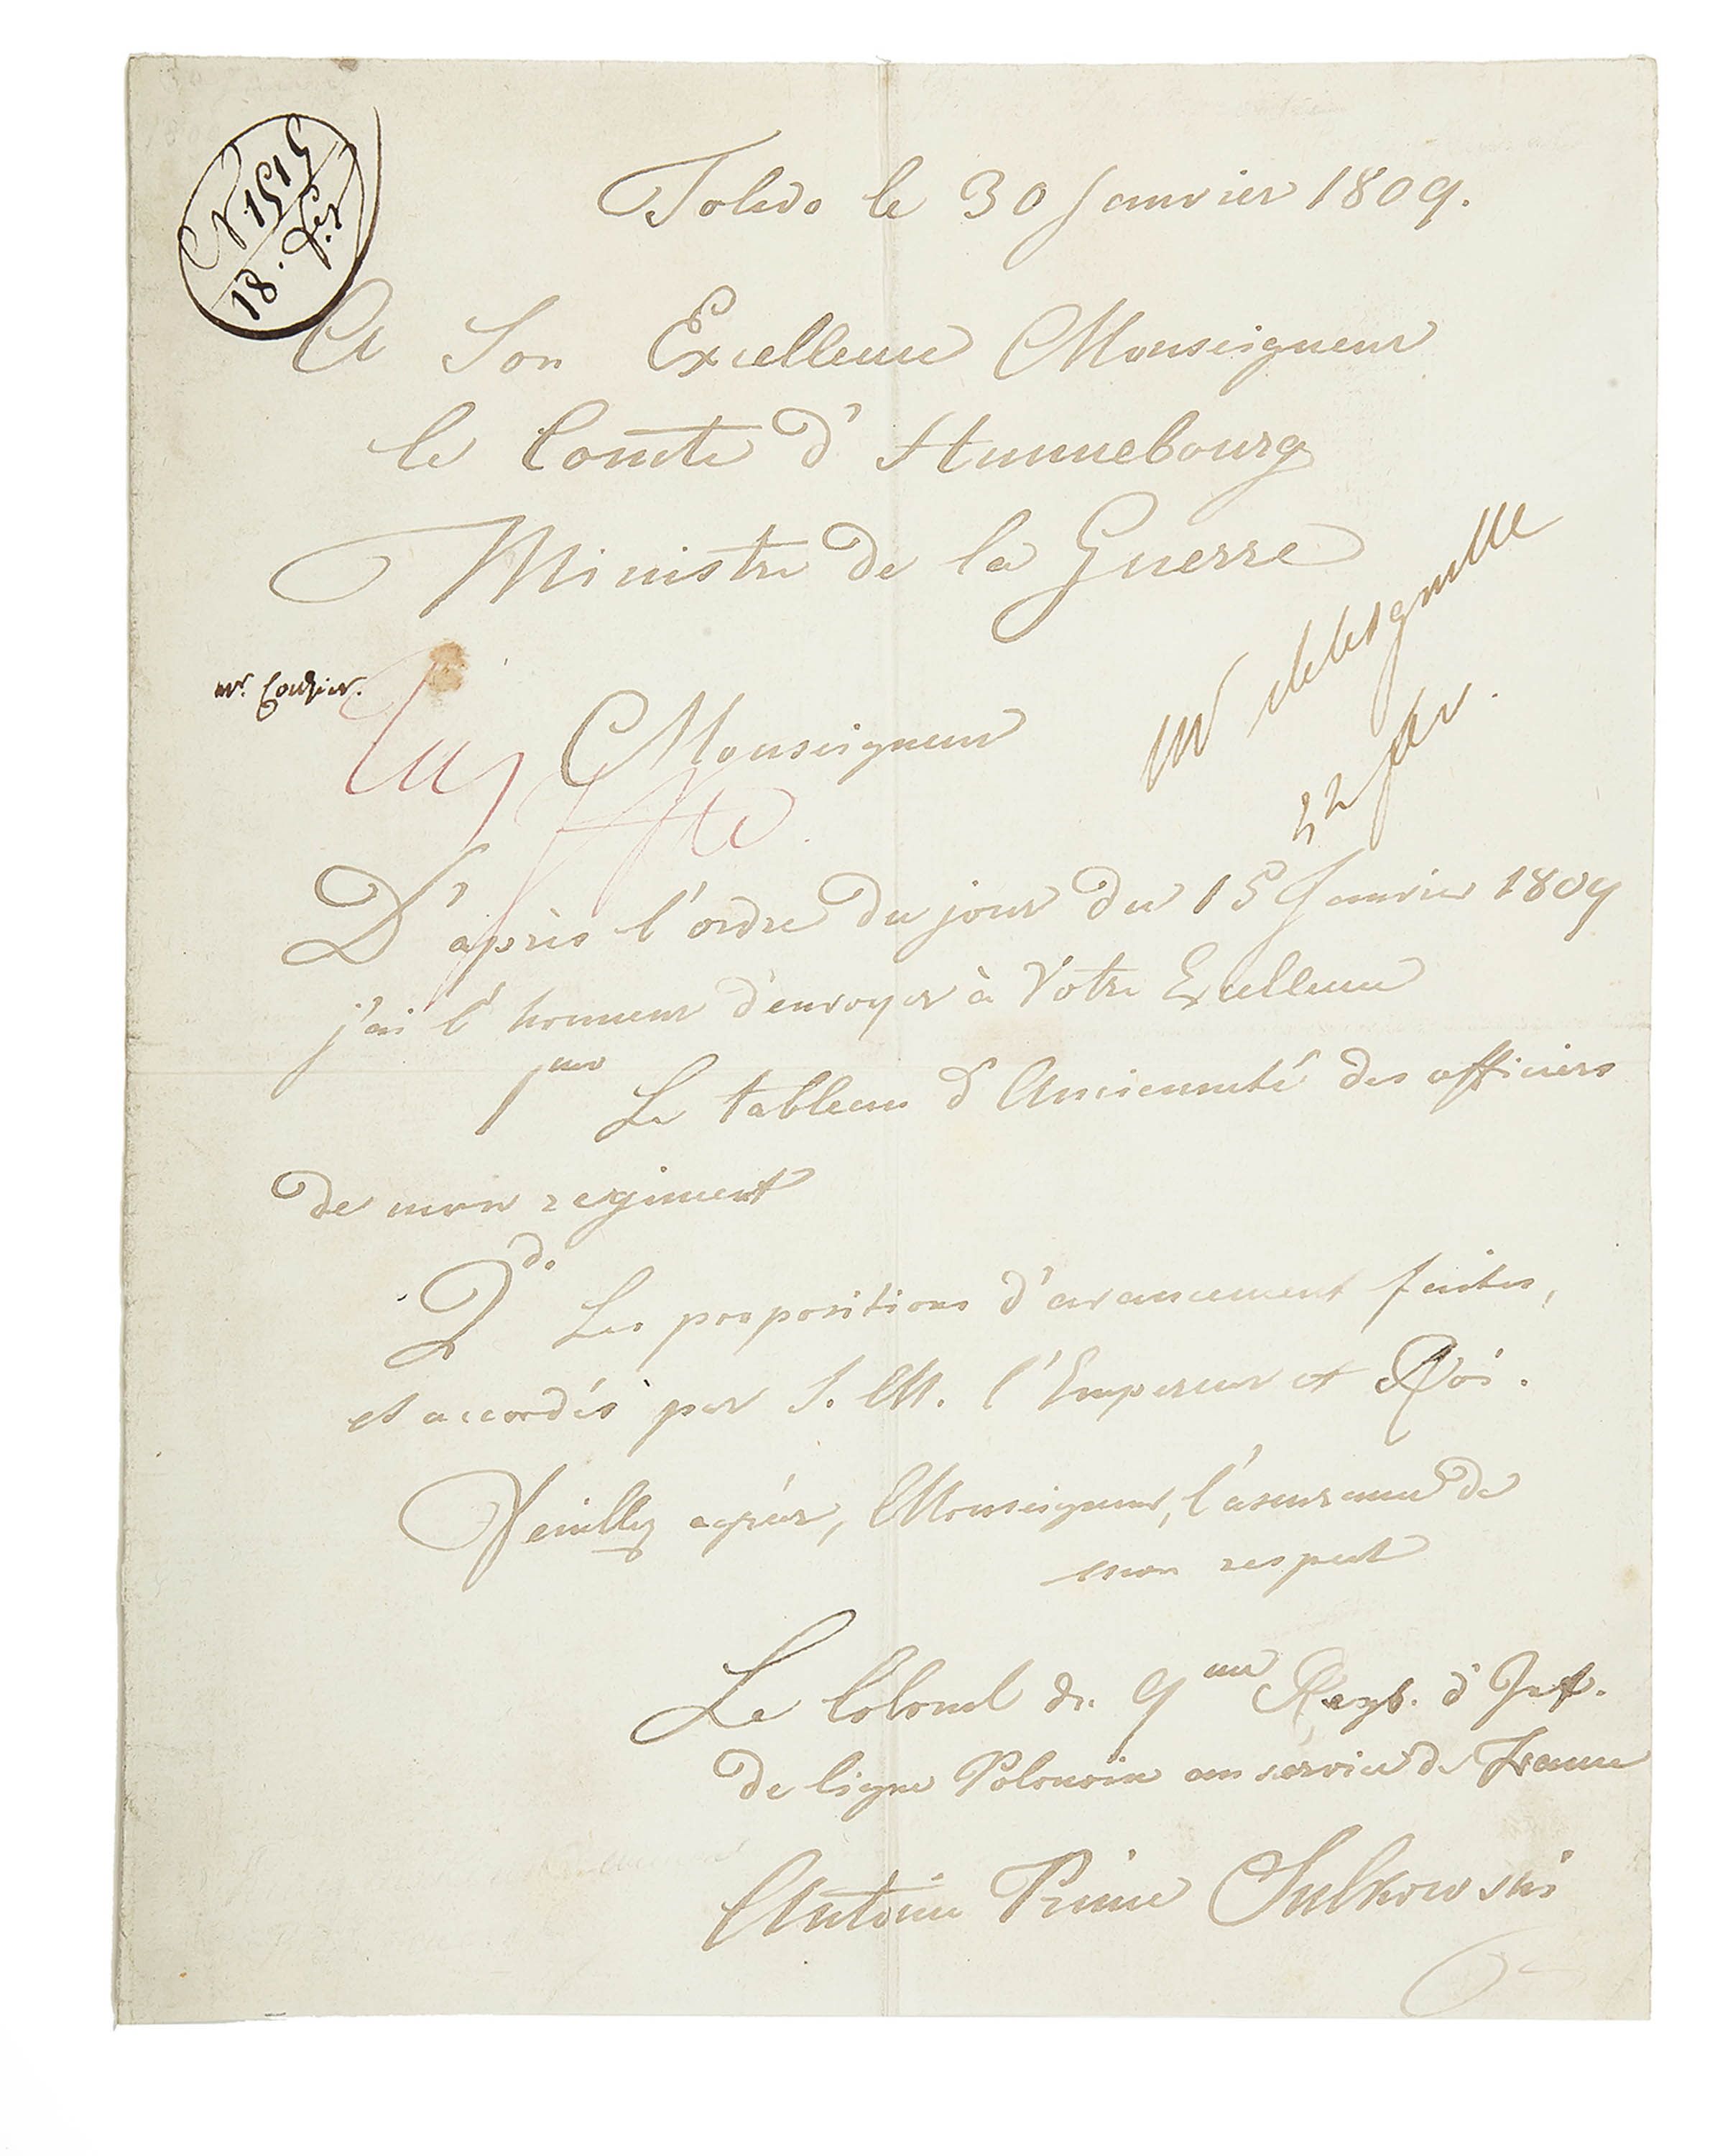 N 1515
18. fer
Toledo le 30 Janvier 1809.
A Son Excellence Monseigneur
le Comte d'Hunnebourg
Ministre de la Guerre
22 fer.
Monseigneur
D'après l'ordre du jour du 15 Janvier 1809
j'ai l'honneur d'envoyer à Votre Excellence
1mo Le tableau d'Ancienneté des officiers
de mon regiment
2do Les propositions d'avancement faites,
et accordés par S. M. l'Empereur et Roi.
Veuillez agréer, Monseigneur, l'asurance de
mon respect
Le Colonel du 9me Regt. d'Inf.
de ligne Polonois au service de France
Antoine Prince Sulkowski